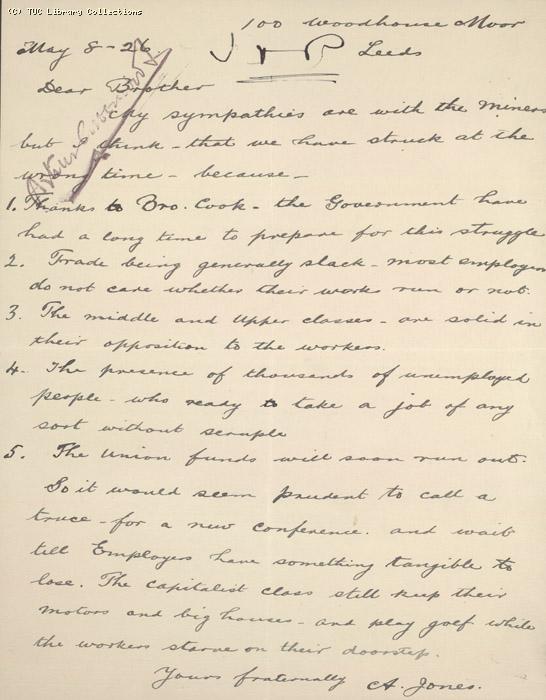 (C) TUC Library Collections
100 Woodhouse Moor
May 8 - 26
Leeds
Dear Brother
My sympathies are with the miners
but I think - that we have struck at the
wrong time - because -
1. Thanks to Bro. Cook - the Government have
had a long time to prepare for this struggle
2. Trade being generally slack - most employers
do not care whether their works run or not.
3. The middle and upper classes - are solid in
their opposition to the workers.
4. The presence of thousands of unemployed
people - who ready to take a job of any
sort without scruple
5. The Union funds will soon run out.
So it would seem prudent to call a
truce - for a new conference. and wait
till Employers have something tangible to
lose. The capitalist class still keep their
motors and big houses - and play golf while
the workers starve on their doorstep.
Yours fraternally A. Jones.